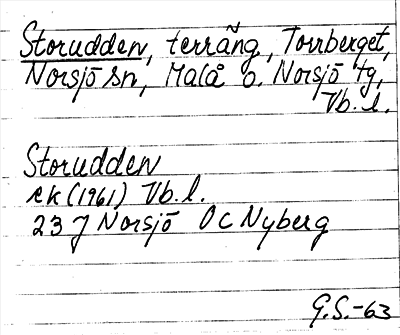 Storudden, terräng, Torrberget,
Norsjö sn, Malå o. Norsjö tg,
Vb. l.
Storudden
ek (1961) Vb. l.
23 J Norsjö OC Nyberg
G.S.-63